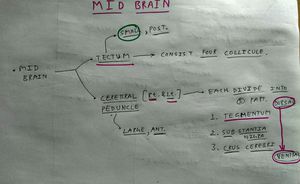 MID BRAIN
SMALL, POST.
TECTUM → CONSIST FOUR COLLICULE.
• MID BRAIN
CEREBRAL PEDUNCLE [Rt. & Lt.] → EACH DIVIDE INTO
③ PART.
DORSAL
1. TEGMENTUM
2. SUBSTANTIA NIGRA
3. CRUS CEREBRI
LARGE, ANT.
VENTRAL